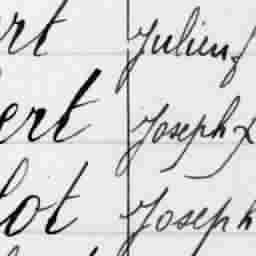 rt Julien f
ert Joseph L
lot Joseph